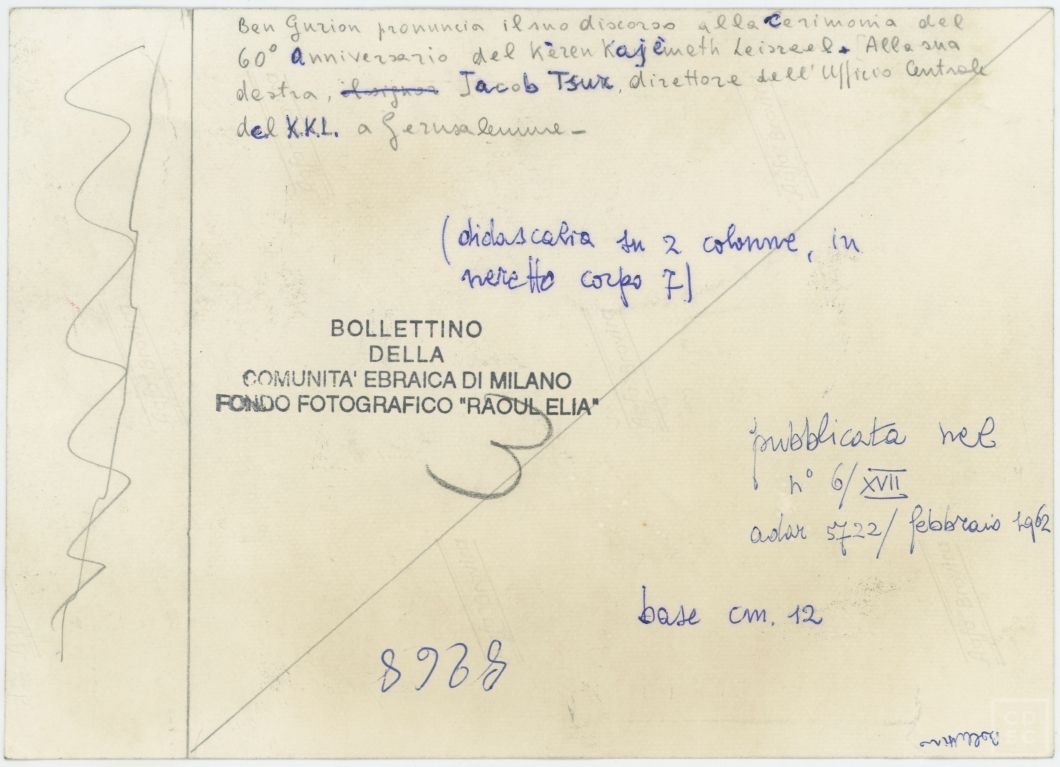 Ben Gurion pronuncia il suo discorso alla Cerimonia del
60° Anniversario del Kèren Kajèmeth Leisrael. Alla sua
destra, il signor Jacob Tsur, direttore dell'Ufficio Centrale
del K.K.L. a Gerusalemme -
(didascalia su 2 colonne, in
neretto corpo 7)
BOLLETTINO
DELLA
COMUNITA' EBRAICA DI MILANO
FONDO FOTOGRAFICO "RAOUL ELIA"
3
pubblicata nel
n° 6/XVII
adar 5722/ febbraio 1962
base cm. 12
8968
CD
EC